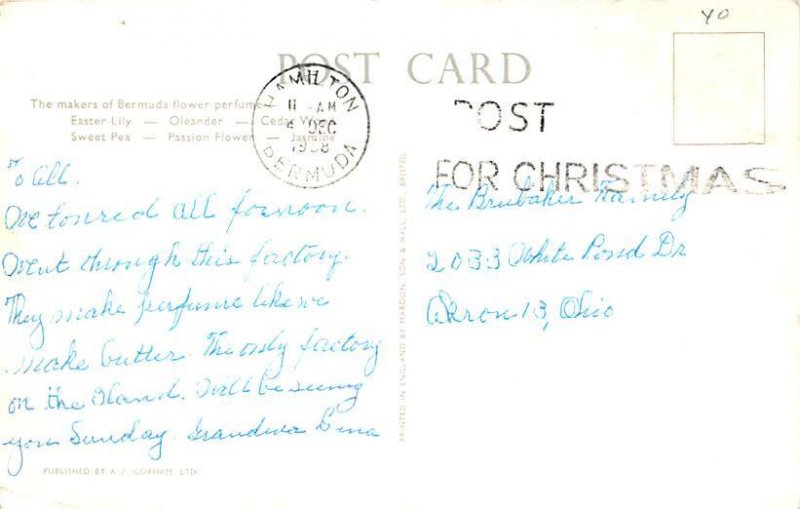 YO
POST CARD
The makers of Bermuda flower perfume
Easter Lily — Oleander — Cedar Wood
Sweet Pea — Passion Flower — Jasmine
HAMILTON
11 - AM
4 DEC
1958
BERMUDA
POST
FOR CHRISTMAS
To All.
We toured All fornoon.
Went through this factory.
They make perfume like we
make butter. The only factory
on the Island. Will be seeing
you Sunday. Grandma
PUBLISHED BY A. J. GORHAM, LTD.
PRINTED IN ENGLAND BY HARDON, SON & HALL, LTD., BRISTOL
The Brubaker Family
2033 White Pond Dr
Akron 13, Ohio